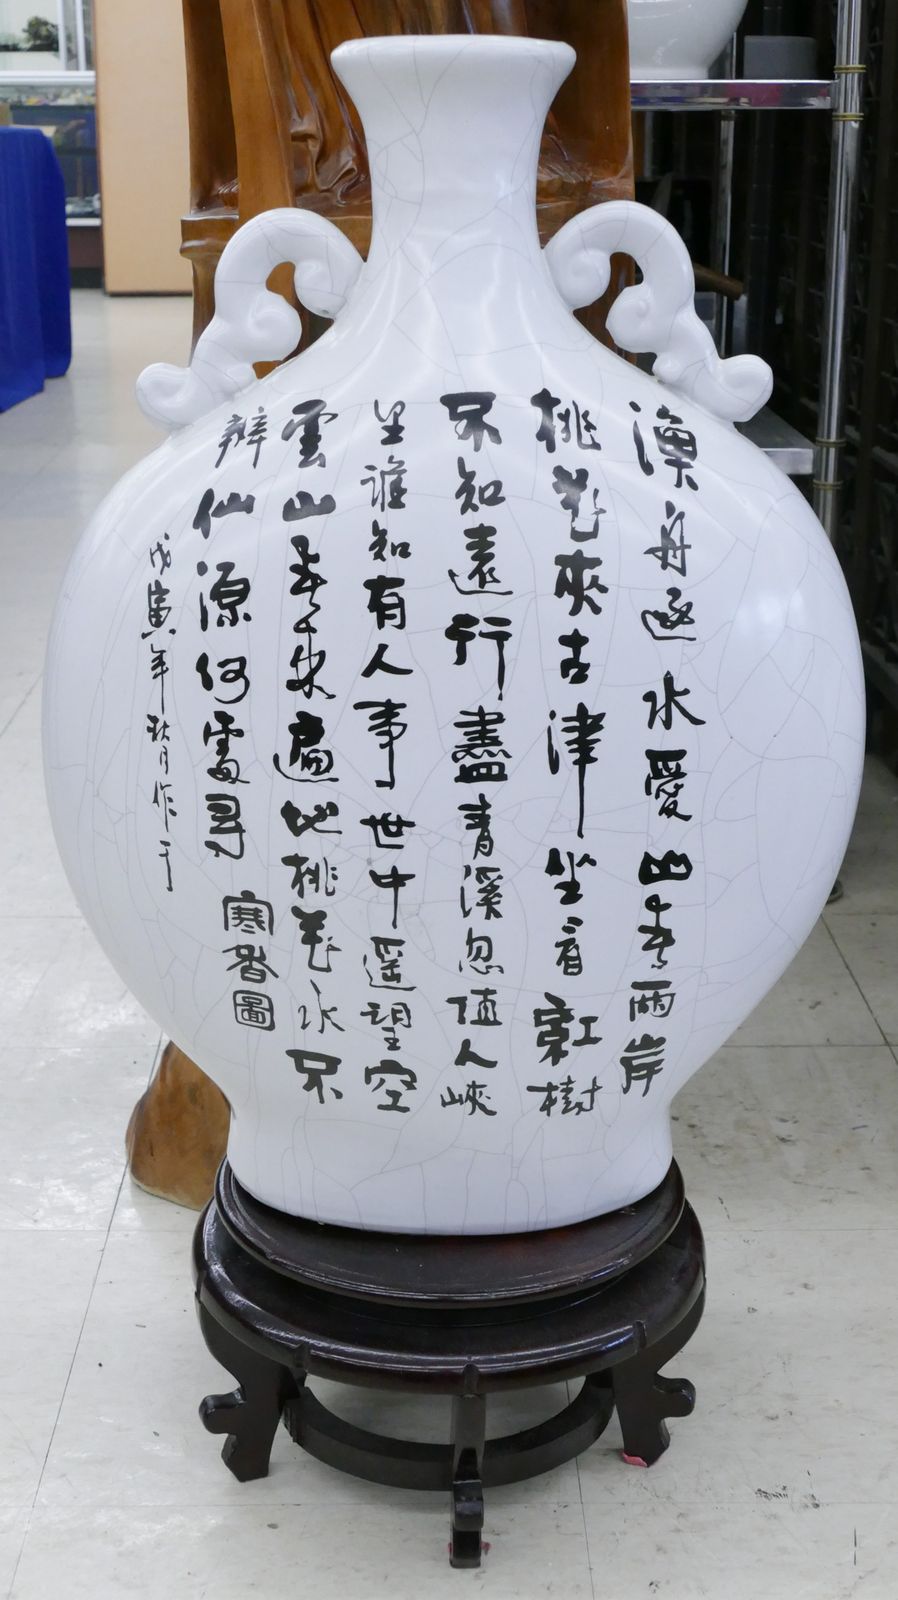 漁舟逐水愛山春兩岸
桃花夾古津坐看紅樹
不知遠行盡青溪忽值人峽
里誰知有人事世中遥望空
雲山春來遍地桃花水不
辨仙源何處尋
寒香圖
戊寅年秋月作于